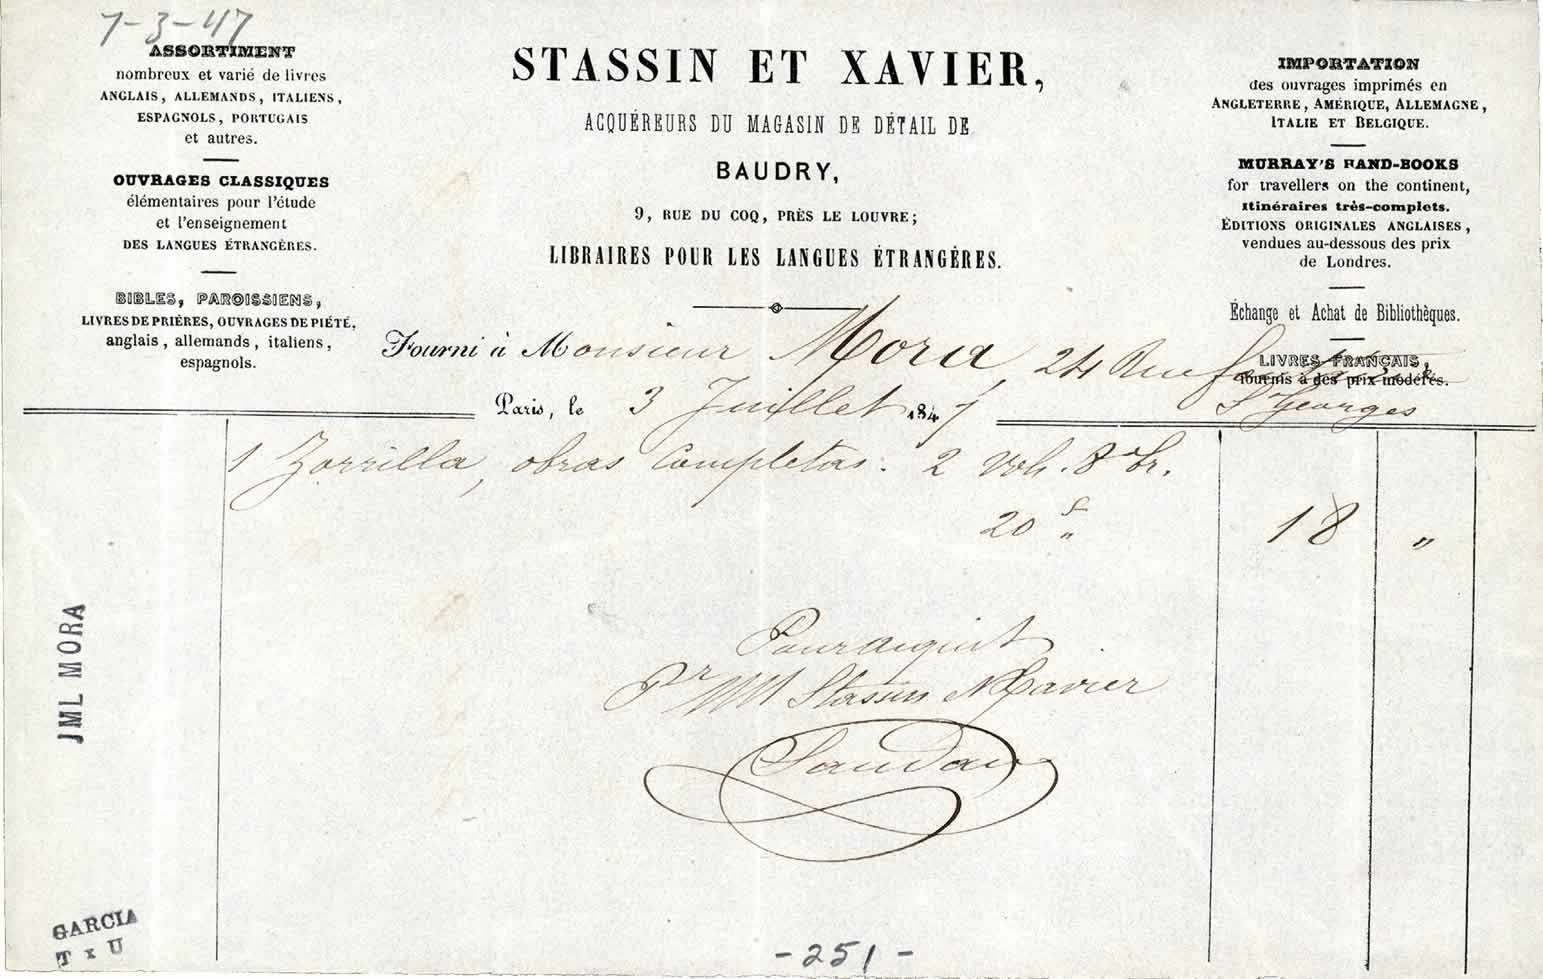 7-3-47
ASSORTIMENT
nombreux et varié de livres
ANGLAIS, ALLEMANDS, ITALIENS,
ESPAGNOLS, PORTUGAIS
et autres.
OUVRAGES CLASSIQUES
élémentaires pour l'étude
et l'enseignement
DES LANGUES ÉTRANGÈRES.
BIBLES, PAROISSIENS,
LIVRES DE PRIÈRES, OUVRAGES DE PIÉTÉ,
anglais, allemands, italiens,
espagnols.
STASSIN ET XAVIER,
ACQUÉREURS DU MAGASIN DE DÉTAIL DE
BAUDRY,
9, RUE DU COQ, PRÈS LE LOUVRE;
LIBRAIRES POUR LES LANGUES ÉTRANGÈRES.
IMPORTATION
des ouvrages imprimés en
ANGLETERRE, AMÉRIQUE, ALLEMAGNE,
ITALIE ET BELGIQUE.
MURRAY'S HAND-BOOKS
for travellers on the continent,
Itinéraires très-complets.
ÉDITIONS ORIGINALES ANGLAISES,
vendues au-dessous des prix
de Londres.
Échange et Achat de Bibliothèques.
LIVRES FRANÇAIS,
fournis à des prix modérés.
Fourni à Monsieur Mora, 24 Rue
St Georges
Paris, le 3 Juillet 1847
1 Zorrilla, obras Completas. 2 vol. 8° br.
20 f " 18 "
Pour acquit
Pr MM Stassin & Xavier
JML MORA
GARCIA
T x U
-251-